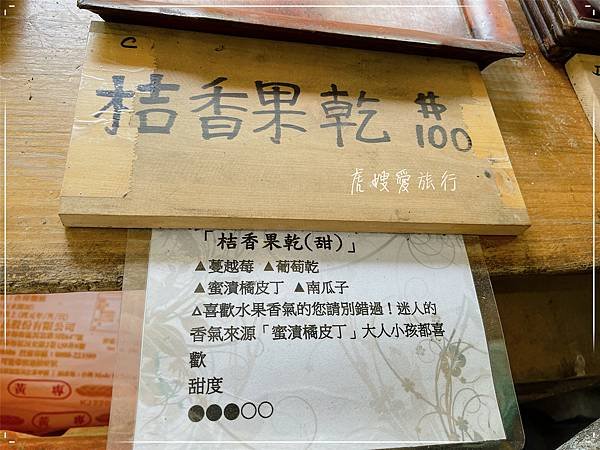 C
桔香果乾 $100
虎嫂愛旅行
「桔香果乾(甜)」
▲蔓越莓 ▲葡萄乾
▲蜜漬橘皮丁 ▲南瓜子
△喜歡水果香氣的您請別錯過！迷人的
香氣來源「蜜漬橘皮丁」大人小孩都喜
歡
甜度
●●●○○
份有限公司
黃專
黃專